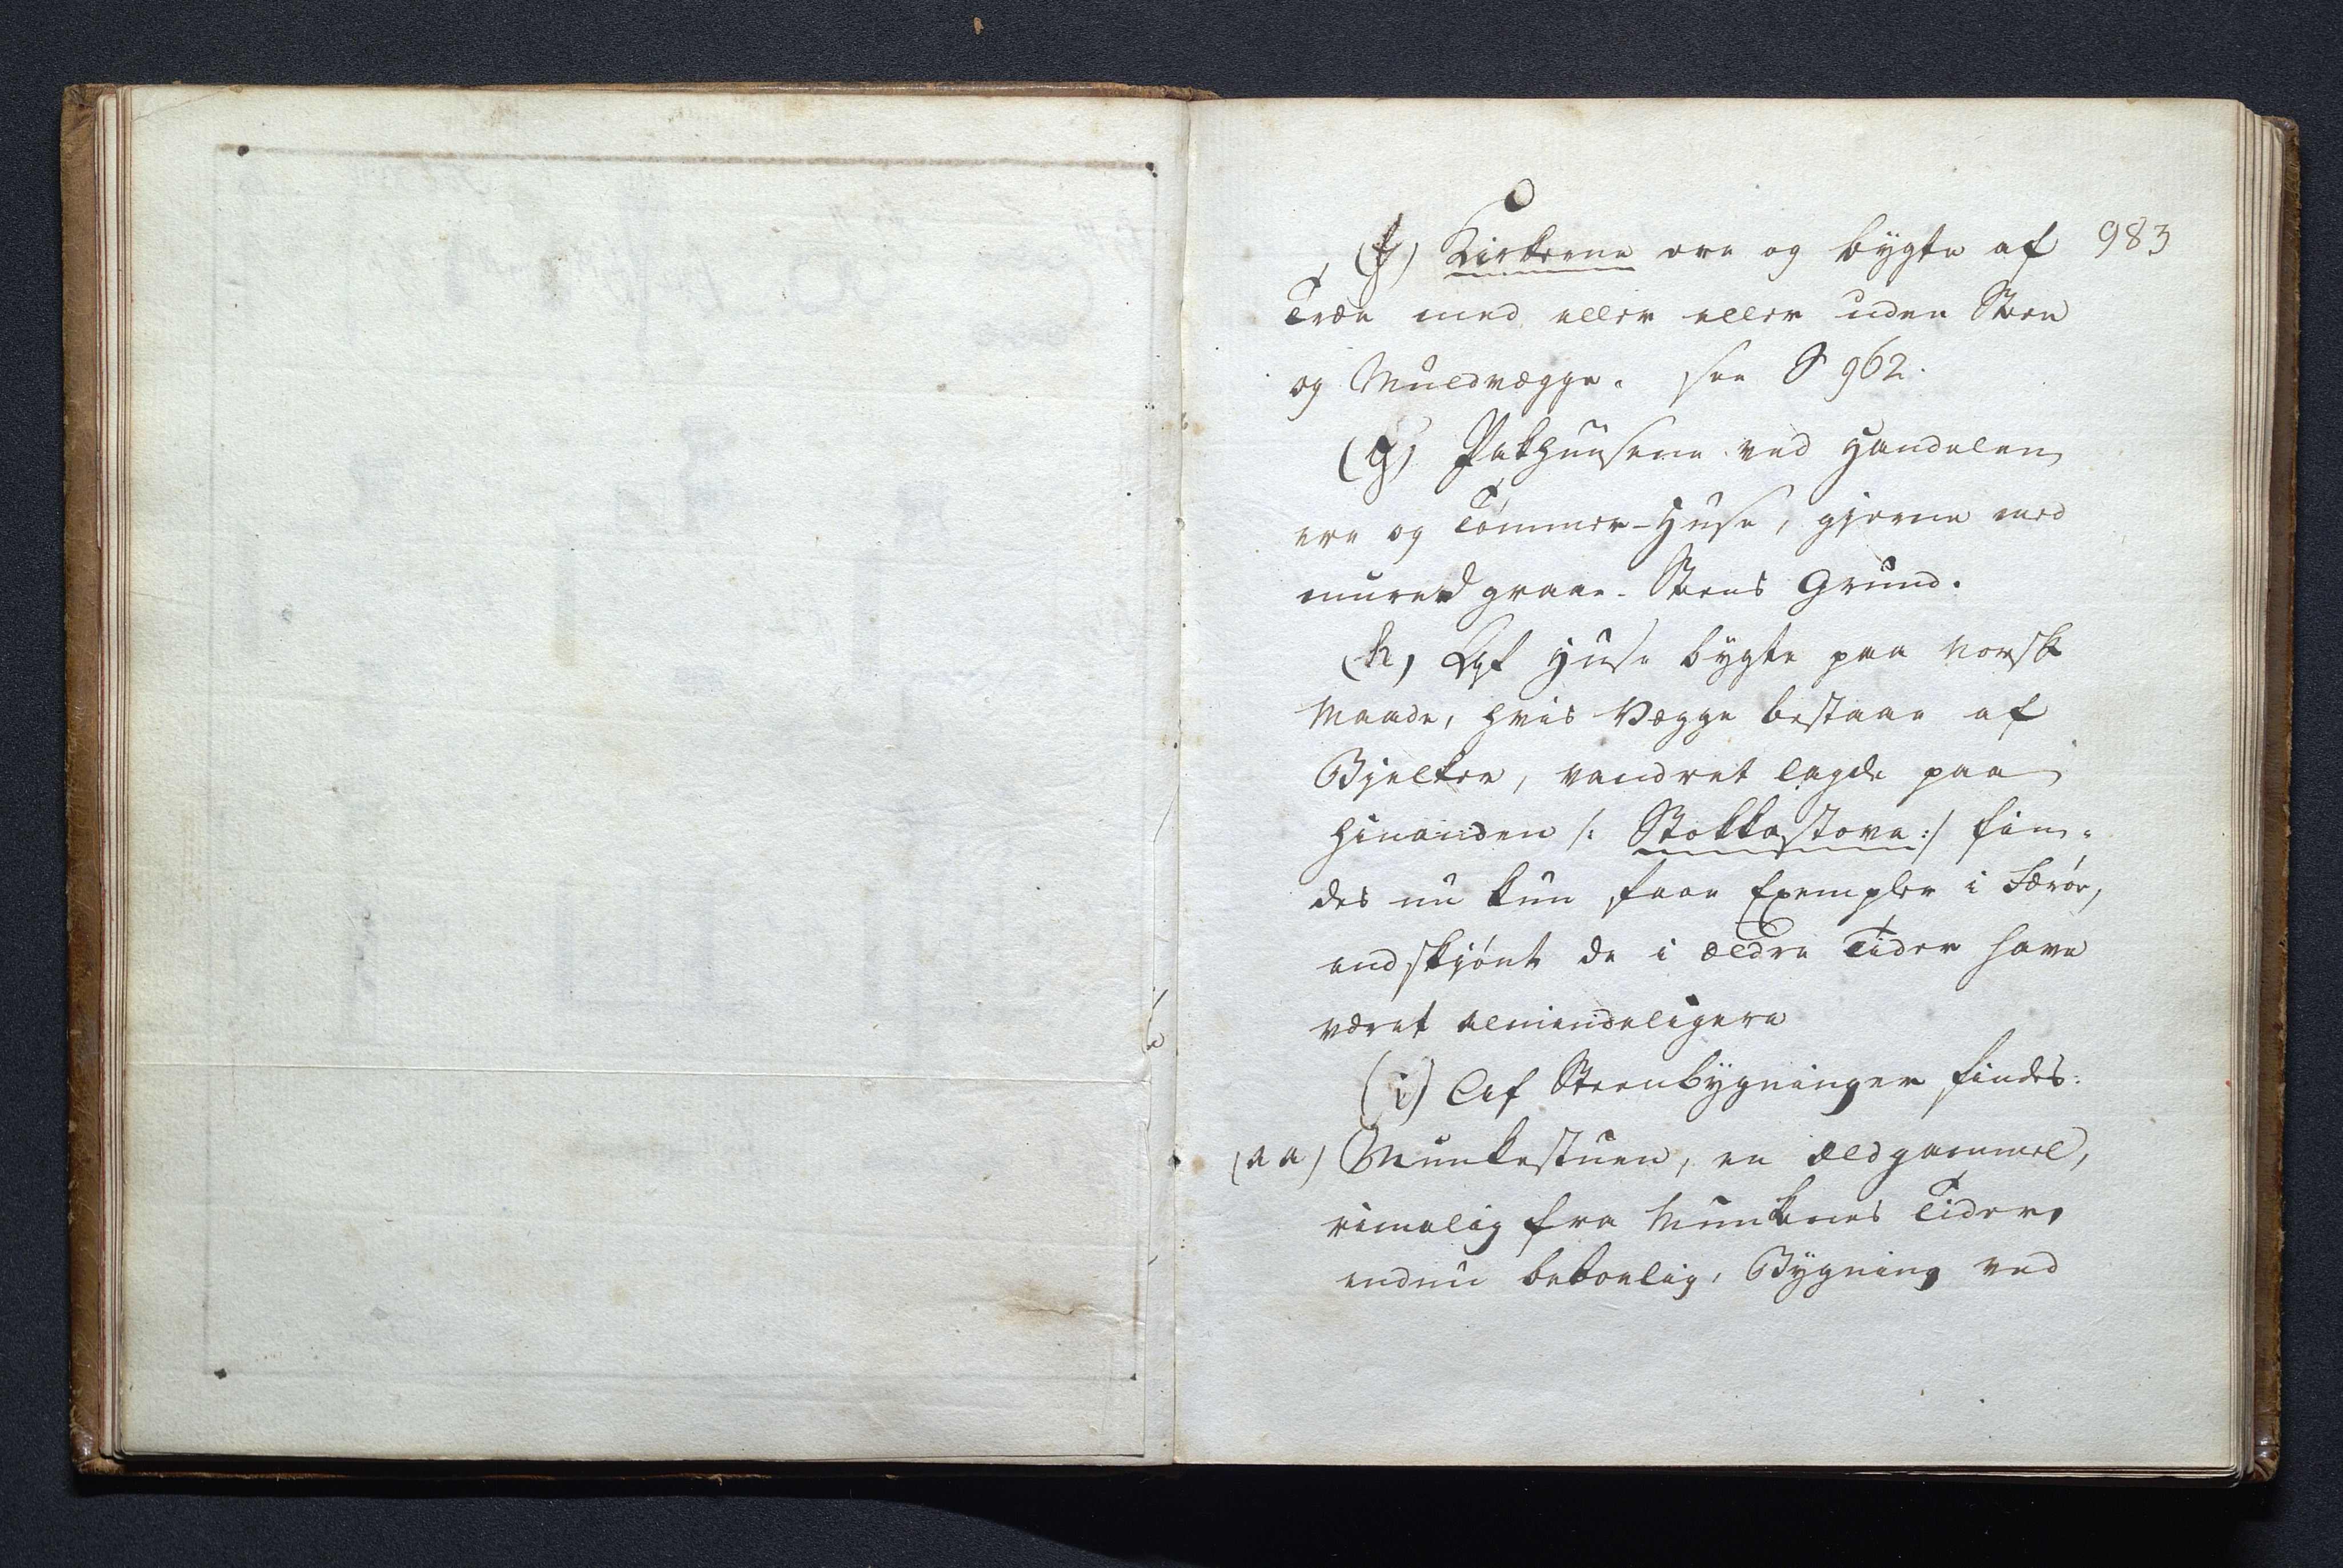 983
(f) Kirkerne ere og bÿgte af
Træe med eller eller uden Steen
og Muldvægge. see S 962.
(g) Pakhuusene ved Handelen
ere og Tømmer-Huse, gjerne med
mured graae-Steens Grund.
(h) Af Huse bÿgte paa Norsk
Maade, hvis Vægge bestaae af
Bjelker, vandret lagde paa
hinanden /: Stokkastova :/ fin-
des nu kun faae Exempler i Færøe,
endskjønt de i ældre Tider have
været almindeligere
(i) Af Steenbÿgninger findes:
(aa) Munkestuen, en ældgammel,
rimelig fra Munkenes Tider,
endnu beboelig, Bÿgning ved